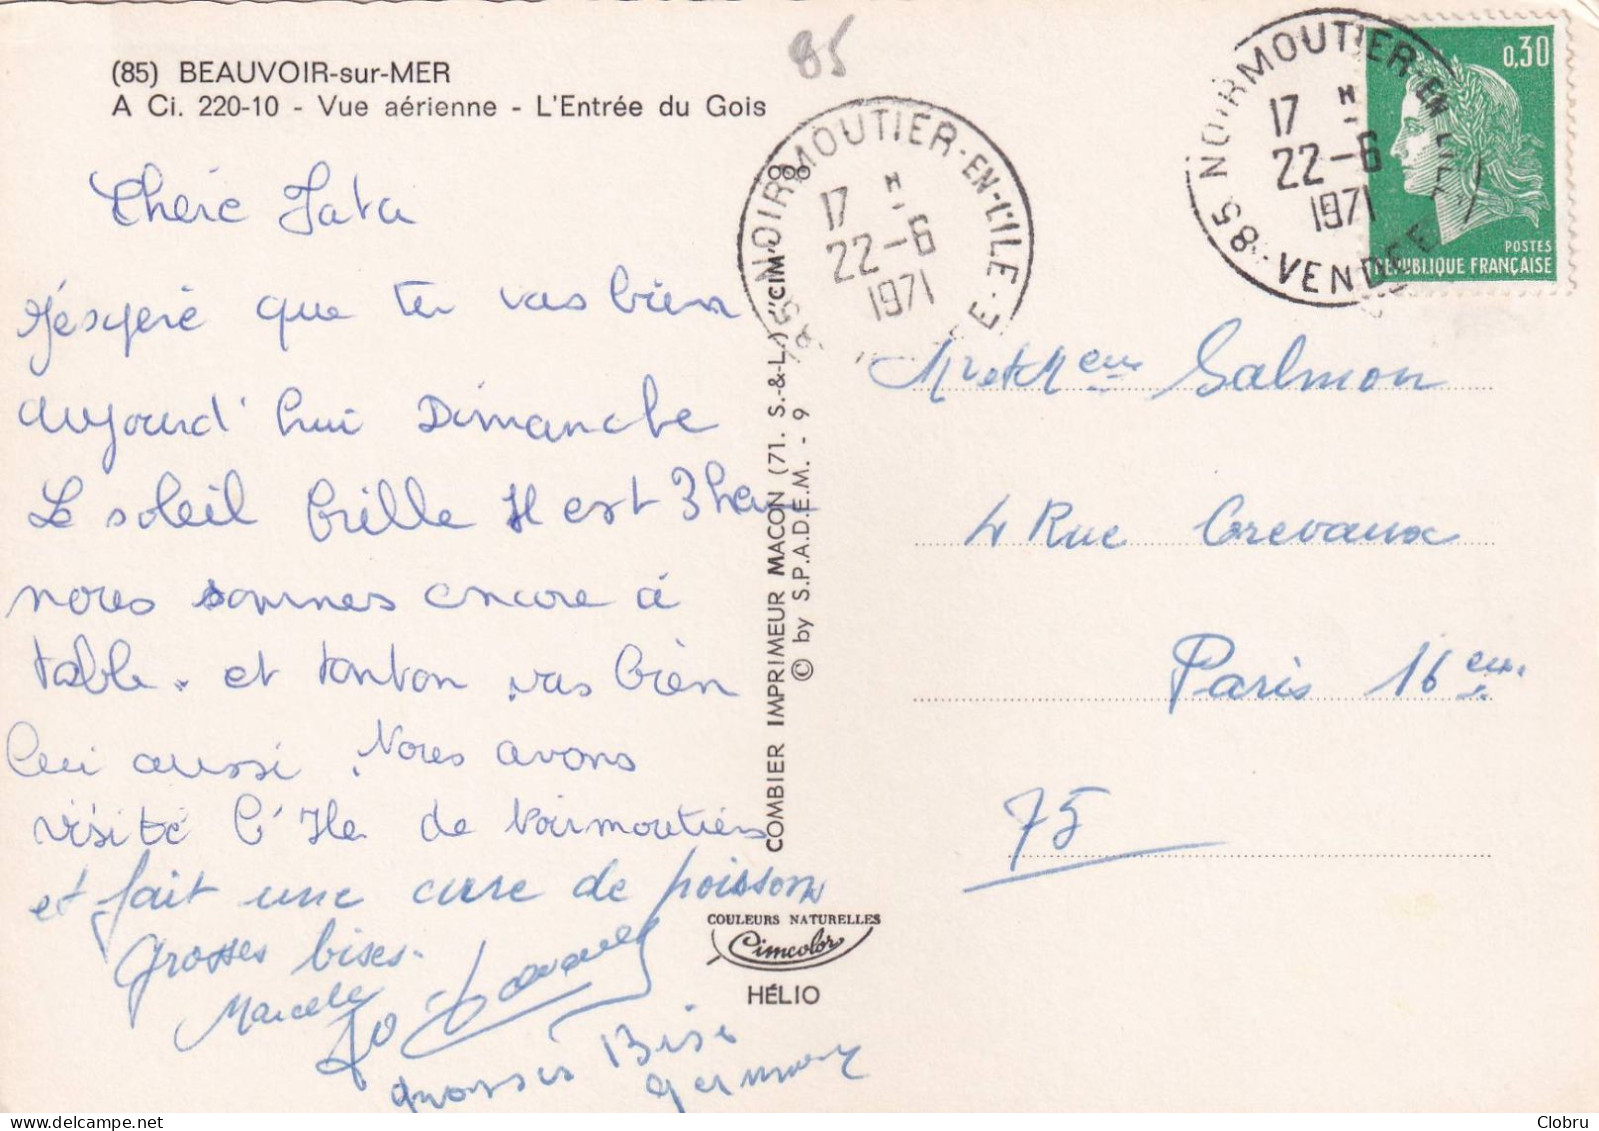 85
(85) BEAUVOIR-sur-MER
A Ci. 220-10 - Vue aérienne - L'Entrée du Gois
Chérie Tata
J'espère que tu vas bien
aujourd'hui Dimanche
Le soleil brille Il est 3 heu
nous sommes encore à
table. et tonton vas bien
lui aussi. Nous avons
visité l'Ile de Noirmoutiers
et fait une cure de poisson
grosses bises.
Marcelle
Jo
grosses Bise
Germaine
COMBIER IMPRIMEUR MACON (71. S.-&-L.) "CIM"
© by S.P.A.D.E.M. - 9
COULEURS NATURELLES
Cimcolor
HÉLIO
85 NOIRMOUTIER-EN-L'ILE
17 H
22-6
1971
85 NOIRMOUTIER-EN-L'ILE
17 H
22-6
1971
VENDEE
0,30
POSTES
REPUBLIQUE FRANÇAISE
Mr et Mme Salmon
4 Rue Crevaux
Paris 16em.
75
Clobru